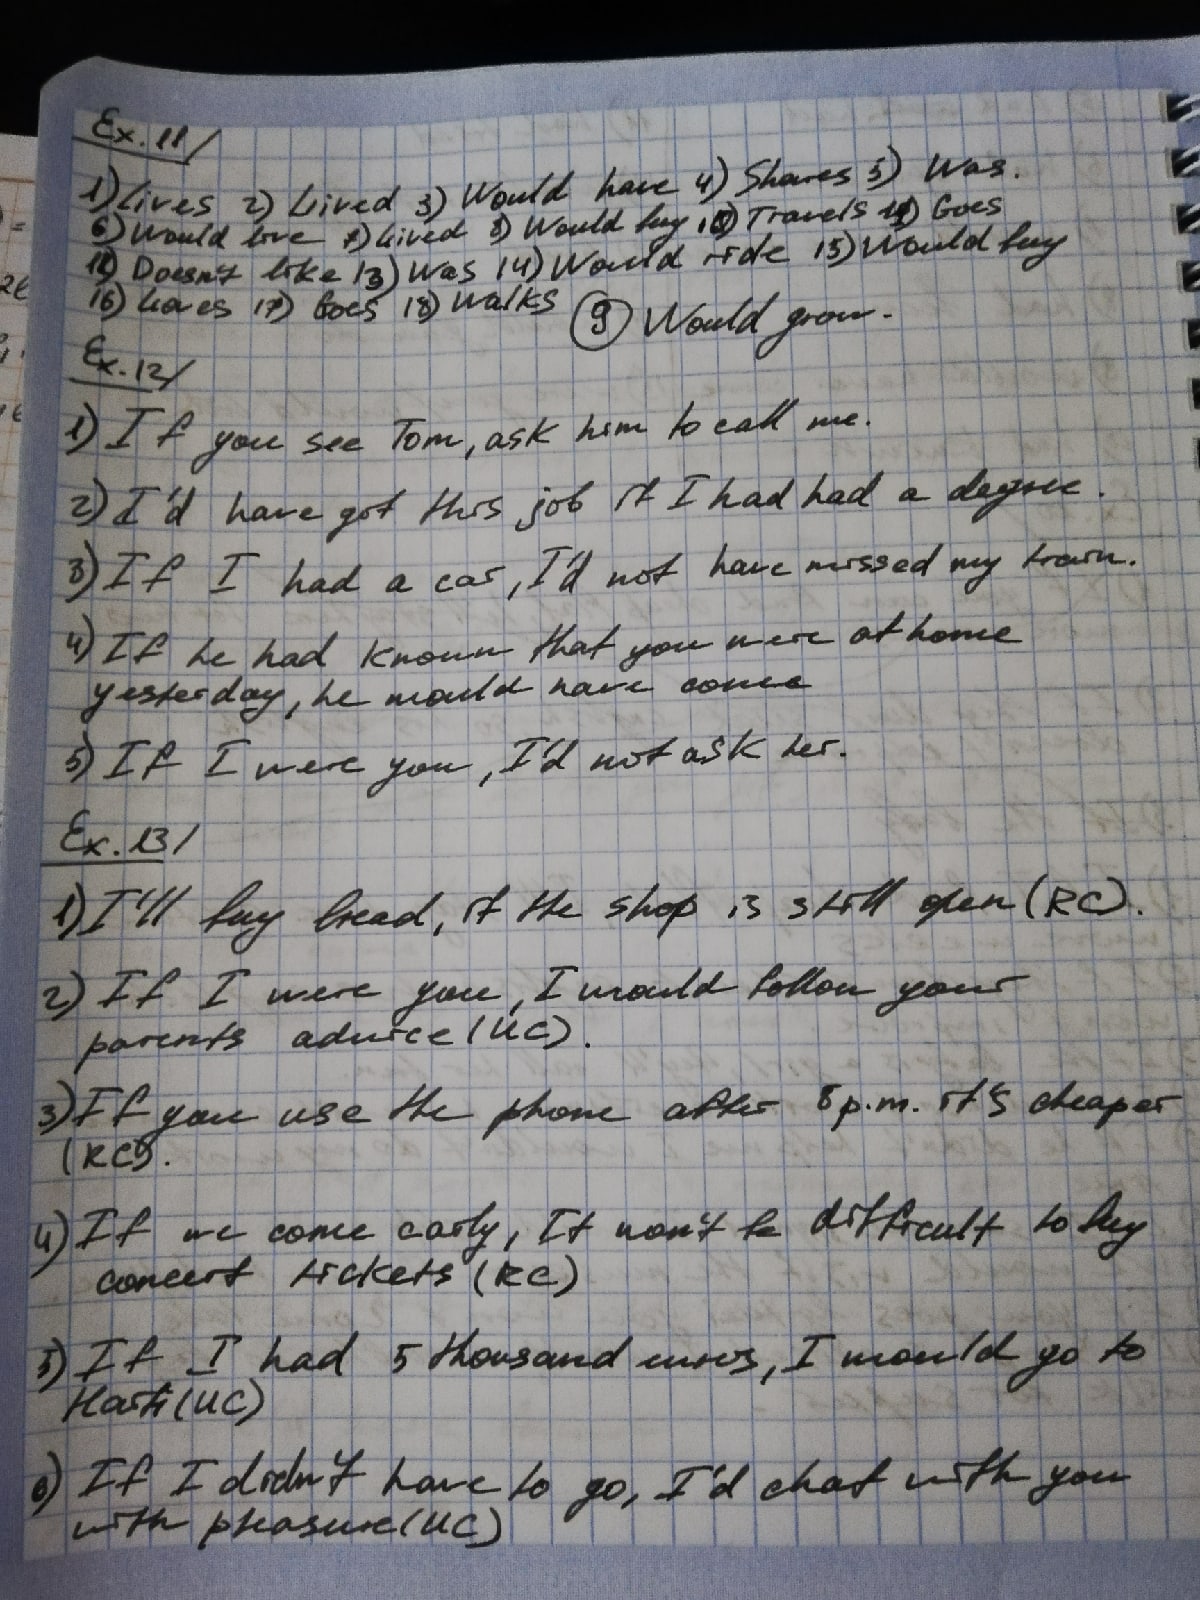 Ex. 11/
1) Lives 2) Lived 3) Would have 4) Shares 5) Was.
6) Would live 7) Lived 8) Would buy 10) Travels 11) Goes
12) Doesn't like 13) Was 14) Would ride 15) Would buy
16) Loves 17) Goes 18) Walks 9) Would grow.
Ex. 12/
1) If you see Tom, ask him to call me.
2) I'd have got this job if I had had a degree.
3) If I had a car, I'd not have missed my train.
4) If he had known that you were at home
yesterday, he would have come
5) If I were you, I'd not ask her.
Ex. 13/
1) I'll buy bread, if the shop is still open (RC).
2) If I were you, I would follow your
parents advice (UC).
3) If you use the phone after 8 p.m. it's cheaper
(RC).
4) If we come early, It won't be difficult to buy
concert tickets (RC)
5) If I had 5 thousand euros, I would go to
Haiti (UC)
6) If I didn't have to go, I'd chat with you
with pleasure (UC)